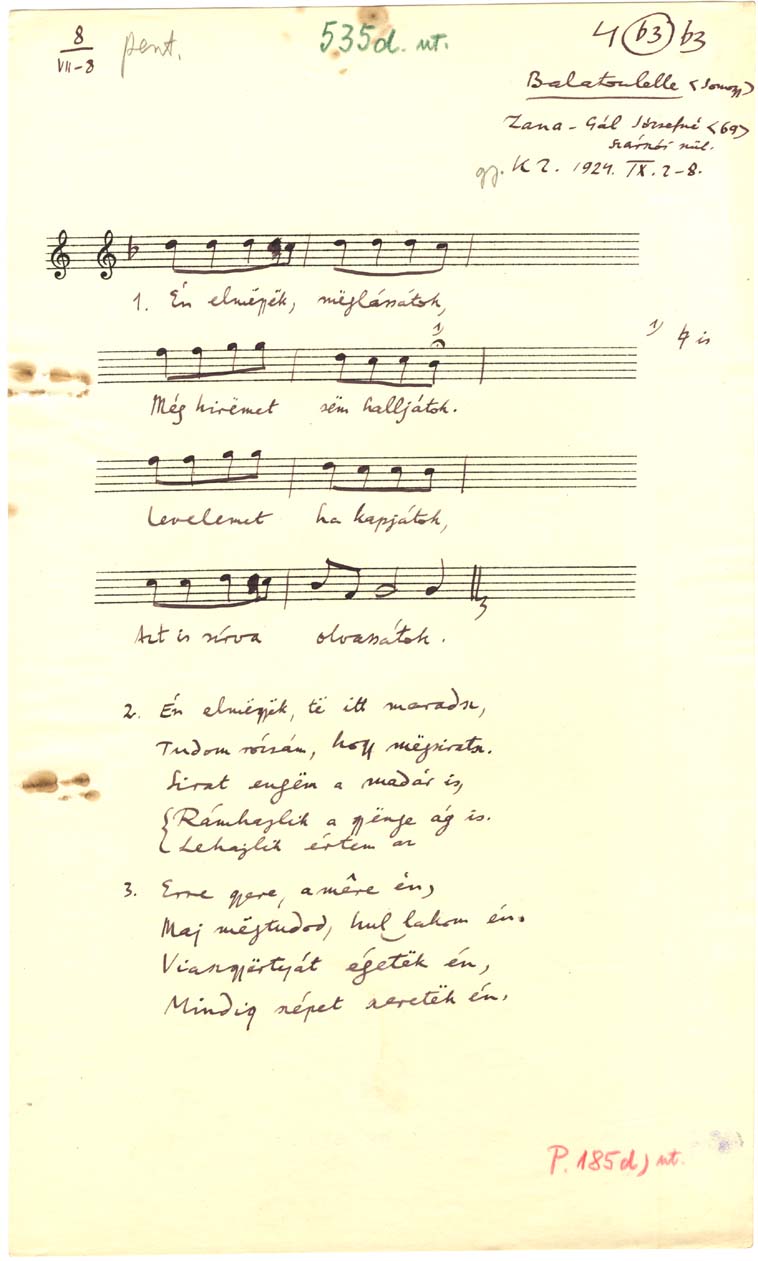 8
VII-8
pent.
535d. nt.
4 b3 b3
Balatonlelle (Somogy)
Zana-Gál Józsefné (69)
szárszói szül.
gy. K Z. 1924. IX. 2-8.
1. Én elmëgyëk, mëglássátok,
1)
1) is
Még hirëmet sëm halljátok.
Levelemet ha kapjátok,
Azt is sírva olvassátok.
2. Én elmëgyëk, të itt maradsz,
Tudom rózsám, hogy mëgsiratsz.
Sirat engëm a madár is,
Rámhajlik a gyënge ág is.
Lehajlik értem az
3. Erre gyere, amêre én,
Maj mëgtudod, hul lakom én.
Viaszgyërtyát égetëk én,
Mindig szépet szeretëk én.
P. 185d) nt.